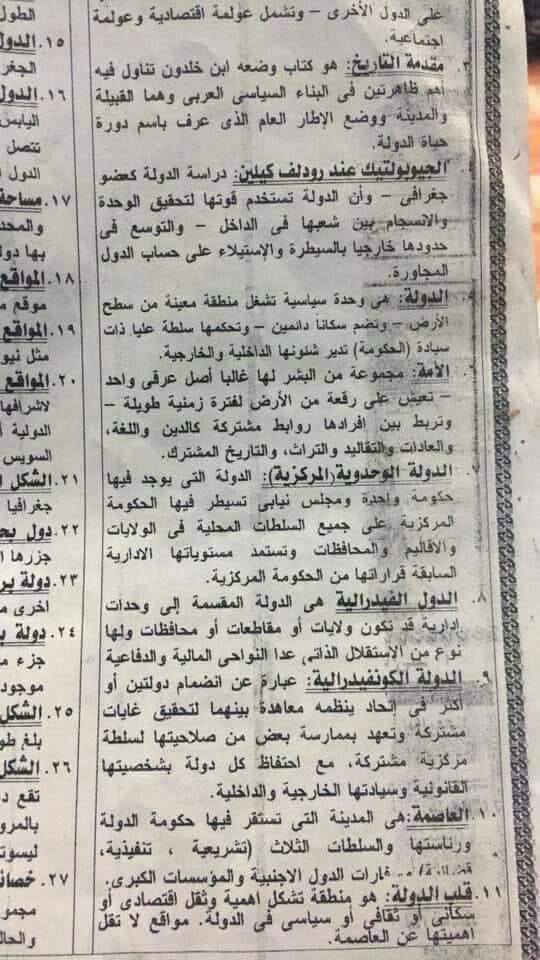 على الدول الأخرى – وتشمل عولمة اقتصادية وعولمة
اجتماعية.
٣. مقدمة التاريخ: هو كتاب وضعه ابن خلدون تناول فيه
أهم ظاهرتين فى البناء السياسى العربى وهما القبيلة
والمدينة ووضع الإطار العام الذى عرف باسم دورة
حياة الدولة.
الجيوبولتيك عند رودلف كيلين: دراسة الدولة كعضو
جغرافى – وأن الدولة تستخدم قوتها لتحقيق الوحدة
والانسجام بين شعبها فى الداخل – والتوسع فى
حدودها خارجيا بالسيطرة والإستيلاء على حساب الدول
المجاورة.
الدولة: هى وحدة سياسية تشغل منطقة معينة من سطح
الأرض – وتضم سكانا دائمين – وتحكمها سلطة عليا ذات
سيادة (الحكومة) تدير شئونها الداخلية والخارجية.
الأمة: مجموعة من البشر لها غالبا أصل عرقى واحد
– تعيش على رقعة من الأرض لفترة زمنية طويلة –
وتربط بين إفرادها روابط مشتركة كالدين واللغة،
والعادات والتقاليد والتراث، والتاريخ المشترك.
الدولة الوحدوية (المركزية): الدولة التى يوجد فيها
حكومة واحدة ومجلس نيابى تسيطر فيها الحكومة
المركزية على جميع السلطات المحلية فى الولايات
والاقاليم والمحافظات وتستمد مستوياتها الادارية
السابقة قراراتها من الحكومة المركزية.
٨. الدول الفيدرالية هى الدولة المقسمة إلى وحدات
إدارية قد تكون ولايات أو مقاطعات أو محافظات ولها
نوع من الاستقلال الذاتى عدا النواحى المالية والدفاعية
٩. الدولة الكونفيدرالية: عبارة عن انضمام دولتين أو
أكثر فى إتحاد ينظمه معاهدة بينهما لتحقيق غايات
مشتركة وتعهد بممارسة بعض من صلاحيتها لسلطة
مركزية مشتركة، مع احتفاظ كل دولة بشخصيتها
القانونية وسيادتها الخارجية والداخلية.
١٠. العاصمة: هى المدينة التى تستقر فيها حكومة الدولة
ورئاستها والسلطات الثلاث (تشريعية ، تنفيذية،
الدول الاجنبية والمؤسسات الكبرى.
١١. قلب الدولة: هو منطقة تشكل اهمية وثقل اقتصادى أو
سكانى أو ثقافى أو سياسى فى الدولة. مواقع لا تقل
اهميتها عن العاصمة.
الطول
١٥. الدول
الجغر
١٦. الدول
اليابس
تتصل
الدول ا
١٧. مساحة
والمحد
بها دوا
١٨. المواقع
موقع م
١٩. المواقع
مثل نيو
٢٠. المواقع
لاشرافها
الدولية أ
السويس
٢١. الشكل ا
جغرافيا
٢٢. دول بحـ
جزرها ا
٢٣. دولة بر
اخرى م
٢٤. دولة ب
جزء مـ
موجود
٢٥. الشكل
بلغ طو
٢٦. الشكل
تقع د
بالمرو
ليسوت
٢٧. خصائـ
مجمو
والحال